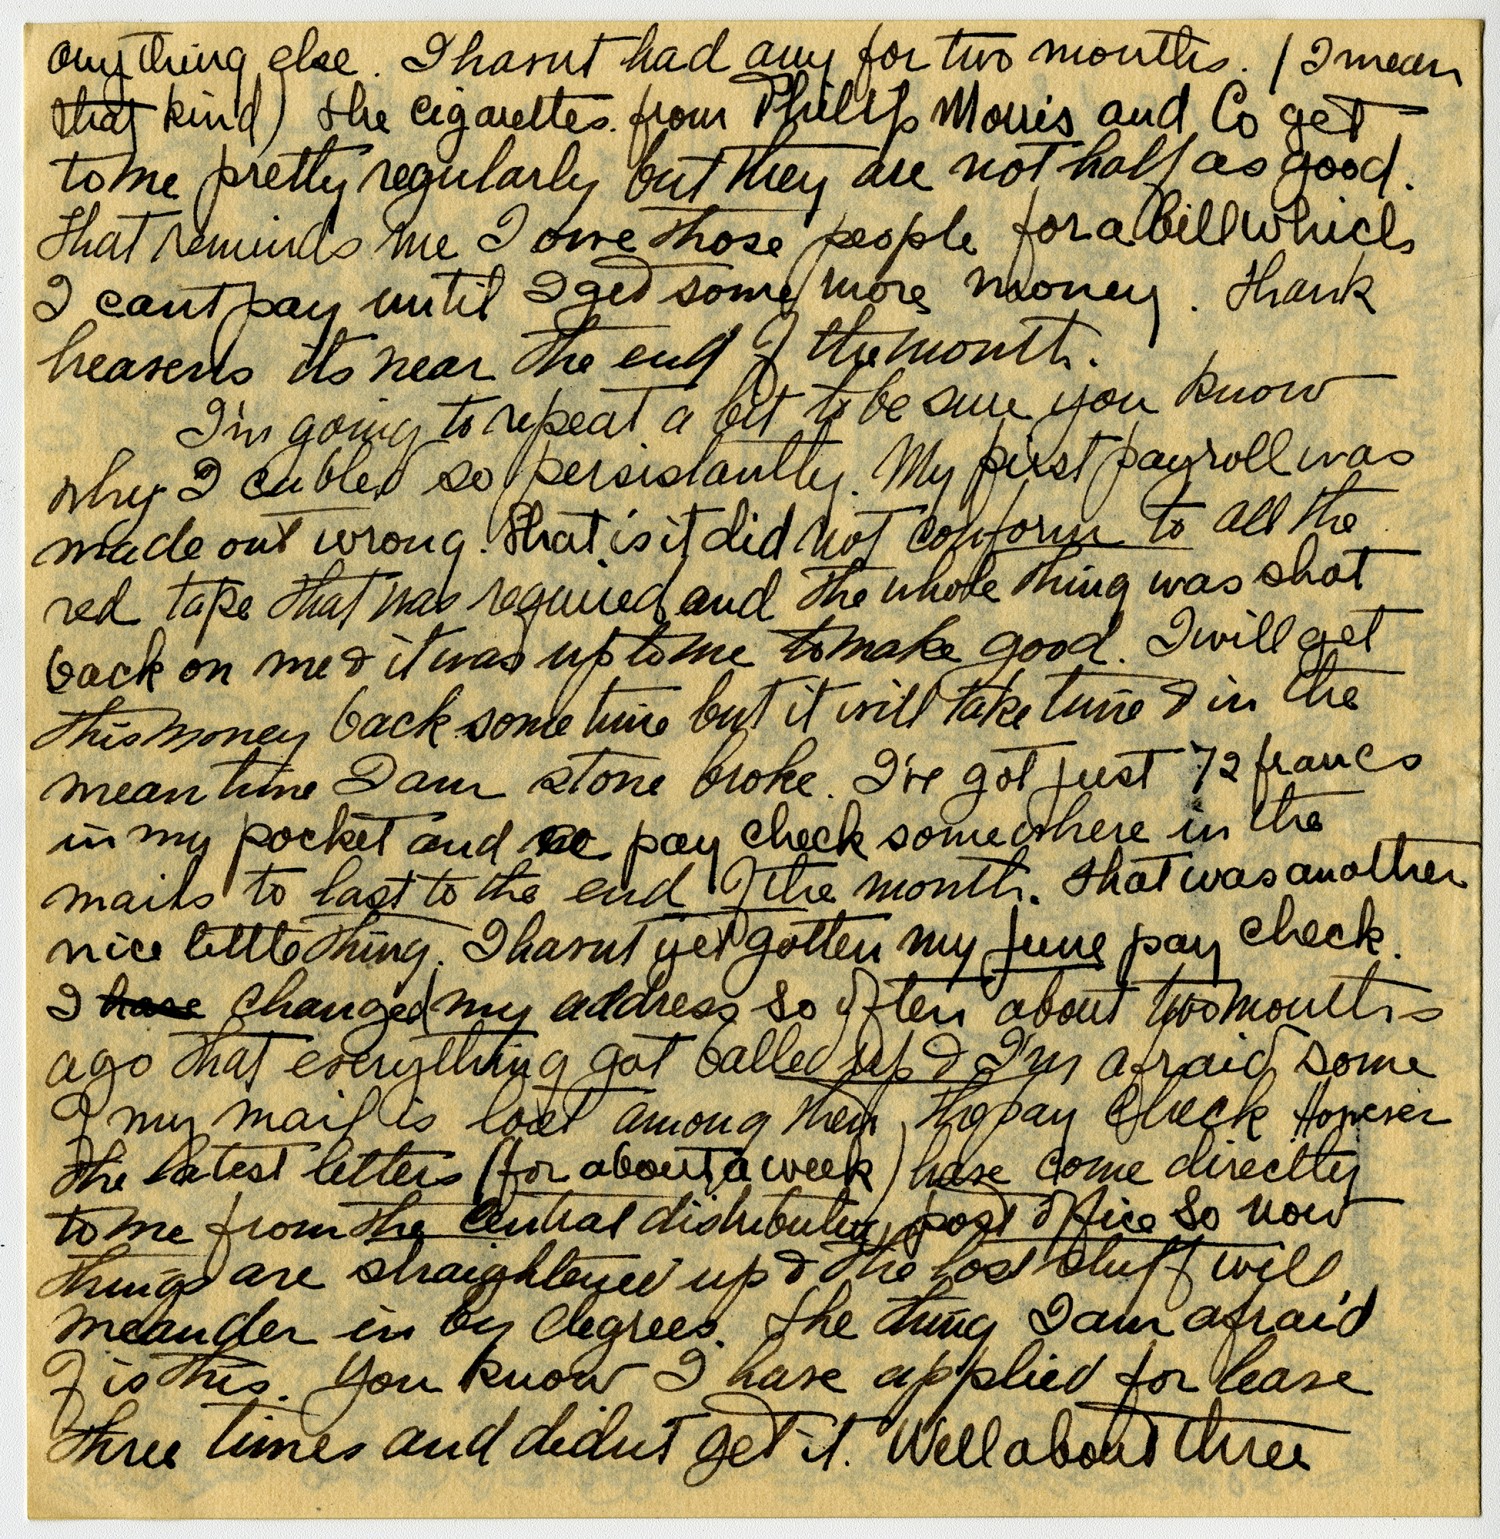 anything else. I hasnt had any for two months. (I mean
that kind) the cigarettes from Philip Morris and Co get
to me pretty regularly but they are not half as good.
that reminds me I owe those people for a bill which
I cant pay until I get some more money. Thank
heavens its near the end of the month.
I'm going to repeat a bit to be sure you know
why I cabled so persistantly. My first payroll was
made out wrong. That is it did not conform to all the
red tape that was required and the whole thing was shot
back on me & it was up to me to make good. I will get
this money back some time but it will take time & in the
mean time I am stone broke. I've got just 72 francs
in my pocket and no pay check somewhere in the
mails to last to the end of the month. That was another
nice little thing. I hasnt yet gotten my June pay check.
I have changed my address so often about two months
ago that everything got balled up & I'm afraid some
of my mail is lost among them the pay check However
the latest letters (for about a week) have come directly
to me from the central distributing post office so now
things are straightened up & the lost stuff will
meander in by degrees. The thing I am afraid
of is this. You know I have applied for leave
three times and didnt get it. Well about three